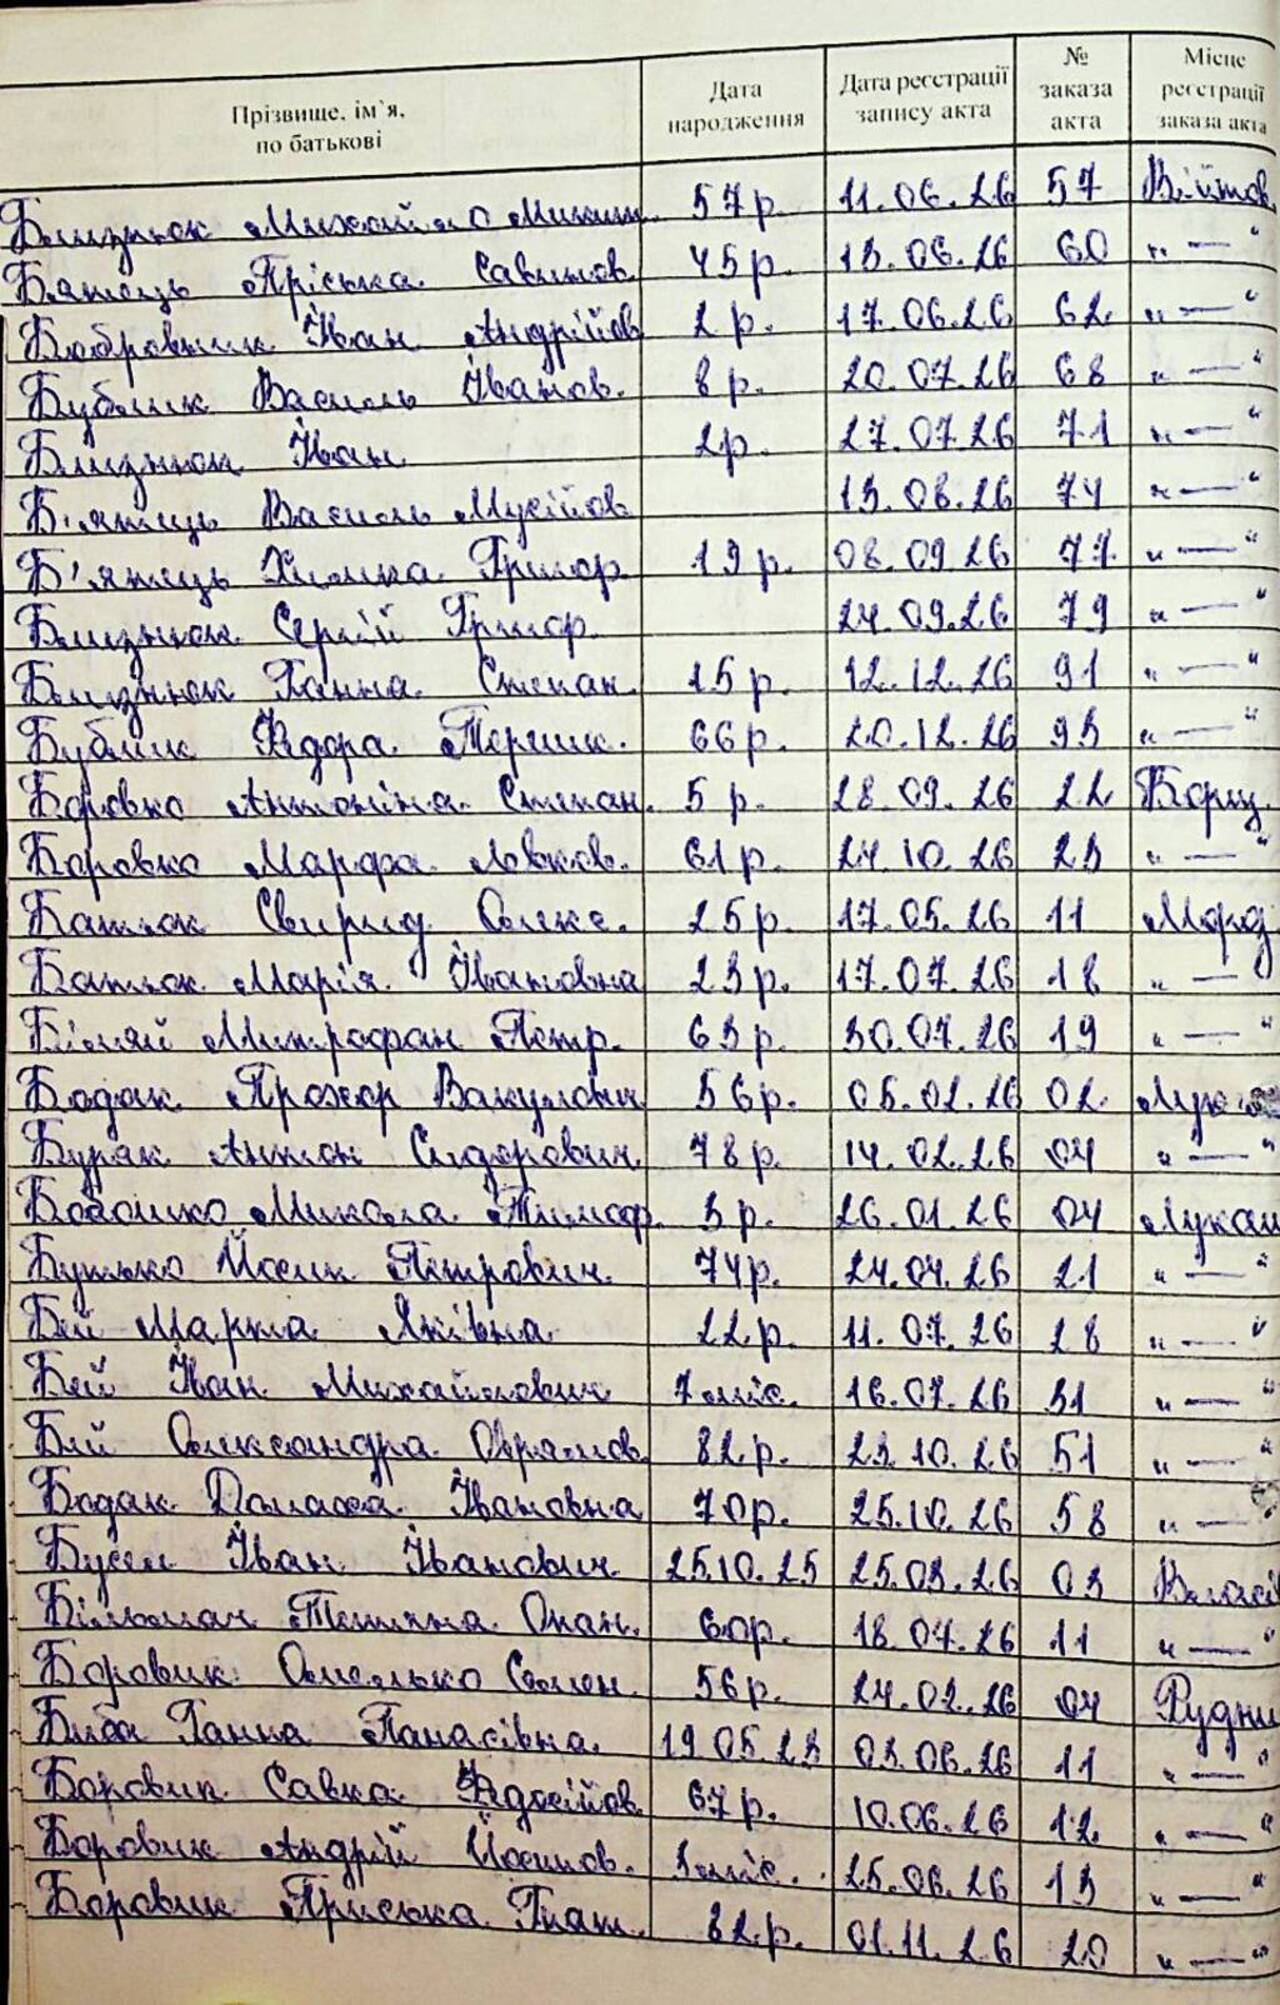 Прізвище, ім`я, по батькові Дата народження Дата реєстрації запису акта № заказа акта Місце реєстрації заказа акта
Близнюк Михайло Микит. 57 р. 11.06.26 57 Війтов.
Б.ятець Пріська Савинов. 45 р. 13.06.26 60 „ — “
Бобровник Іван Андрійов 2 р. 17.06.26 62 „ — “
Бублик Василь Іванов. 8 р. 20.07.26 68 „ — “
Близнюк Іван 2 р. 27.07.26 71 „ — “
Б'ятець Василь Мусійов 13.08.26 74 „ — “
Б'ятець Химка Григор. 19 р. 08.09.26 77 „ — “
Близнюк Сергій Григор. 24.09.26 79 „ — “
Близнюк Ганна Степан. 15 р. 12.12.26 91 „ — “
Бублик Федора Терешк. 66 р. 20.12.26 93 „ — “
Боровко Антоніна Степан. 5 р. 28.09.26 22 Борщ.
Боровко Марфа Левков. 61 р. 24.10.26 23 „ — “
Батюк Свирид Олекс. 25 р. 17.05.26 11 Морд
Батюк Марія Івановна 23 р. 17.07.26 18 „ — “
Біляй Митрофан Петр. 63 р. 30.07.26 19 „ — “
Бодак Прохор Вакулович 56 р. 05.02.26 02
Бурак Антон Сидорович 78 р. 14.02.26 04 „ — “
Бобошко Микола Тимоф. 3 р. 26.01.26 04 Лукаш
Бутько Йосип Петрович 74 р. 24.04.26 21 „ — “
Бей Марина Яківна 22 р. 11.07.26 28 „ — “
Бей Іван Михайлович 7 міс. 16.07.26 31 „ — “
Бей Олександра Оврамов. 82 р. 23.10.26 51 „ — “
Бодак Домаха Івановна 70 р. 25.10.26 58 „ — “
Бусел Іван Іванович 25.10.25 25.03.26 03 Власі
Більмач Тетяна Опан. 60 р. 18.07.26 11 „ — “
Боровик Омелько Семен. 56 р. 24.02.26 04 Рудни
Биба Ганна Панасівна 19.05.23 03.06.26 11 „ — “
Боровик Савка Федосійов. 67 р. 10.06.26 12 „ — “
Боровик Андрій Йосипов. 3 міс. 25.06.26 13 „ — “
Боровик Приська Гнат. 82 р. 01.11.26 20 „ — “